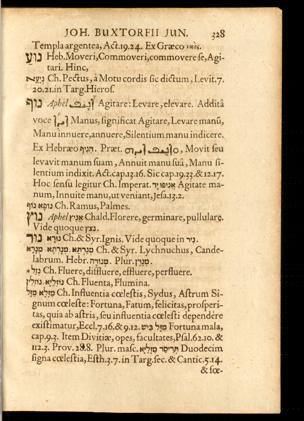 JOH. BUXTORFII JUN. 328
Templa argentea, Act. 19.24. Ex Græco
נוע Heb. Moveri, Commoveri, commovere se, Agi-
tari. Hinc,
Ch. Pectus, à Motu cordis sic dictum, Levit. 7.
20.21. in Targ. Hieros.
נוף Aphel Agitare: Levare, elevare. Additâ
voce Manus, significat Agitare, Levare manũ,
Manu innuere, annuere, Silentium manu indicere.
Ex Hebræo הניף. Præt. Movit seu
levavit manum suam, Annuit manu suâ, Manu si-
lentium indixit. Act. cap. 13.16. Sic cap. 19.33. & 12.17.
Hoc sensu legitur Ch. Imperat. Agitate ma-
num, Innuite manu, ut veniant, Jesa. 13.2.
נופא נוף Ch. Ramus, Palmes.
נוץ Aphel אניץ Chald. Florere, germinare, pullulare.
Vide quoque נצץ.
נור נורא Ch. & Syr. Ignis. Vide quoque in ניר.
Ch. & Syr. Lychnuchus, Cande-
labrum. Hebr. מנורה. Plur. מנרין.
נזל Ch. Fluere, diffluere, effluere, perfluere.
Ch. Fluenta, Flumina.
מזלא מזל Ch. Influentia cœlestis, Sydus, Astrum Si-
gnum cœleste: Fortuna, Fatum, felicitas, prosperi-
tas, quia ab astris, seu influentia cœlesti dependére
existimatur, Eccl. 7.16. & 9.12. מזל ביש Fortuna mala,
cap. 9.3. Item Divitiæ, opes, facultates, Psal. 62.10. &
112.3. Prov. 28.8. Plur. masc. תריסר מזליא Duodecim
signa cœlestia, Esth. 3.7. in Targ. sec. & Cantic. 5.14.
& sœ-